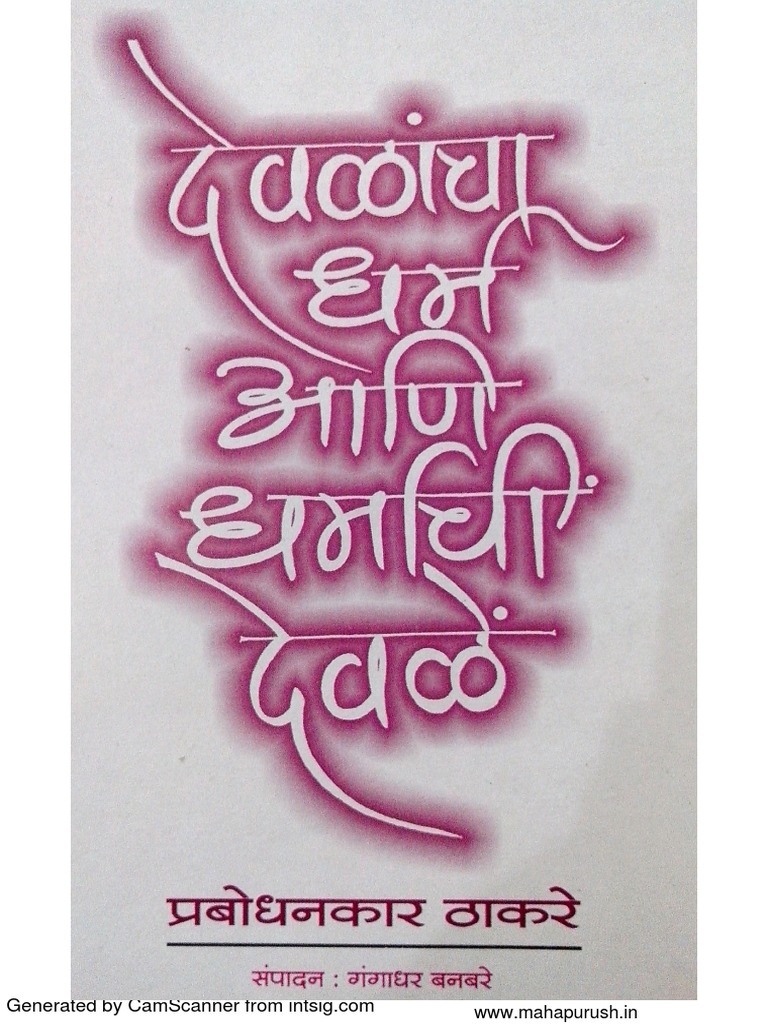 देवळांचा
धर्म
आणि
धर्माचीं
देवळें
प्रबोधनकार ठाकरे
संपादन : गंगाधर बनबरे
Generated by CamScanner from intsig.com
www.mahapurush.in